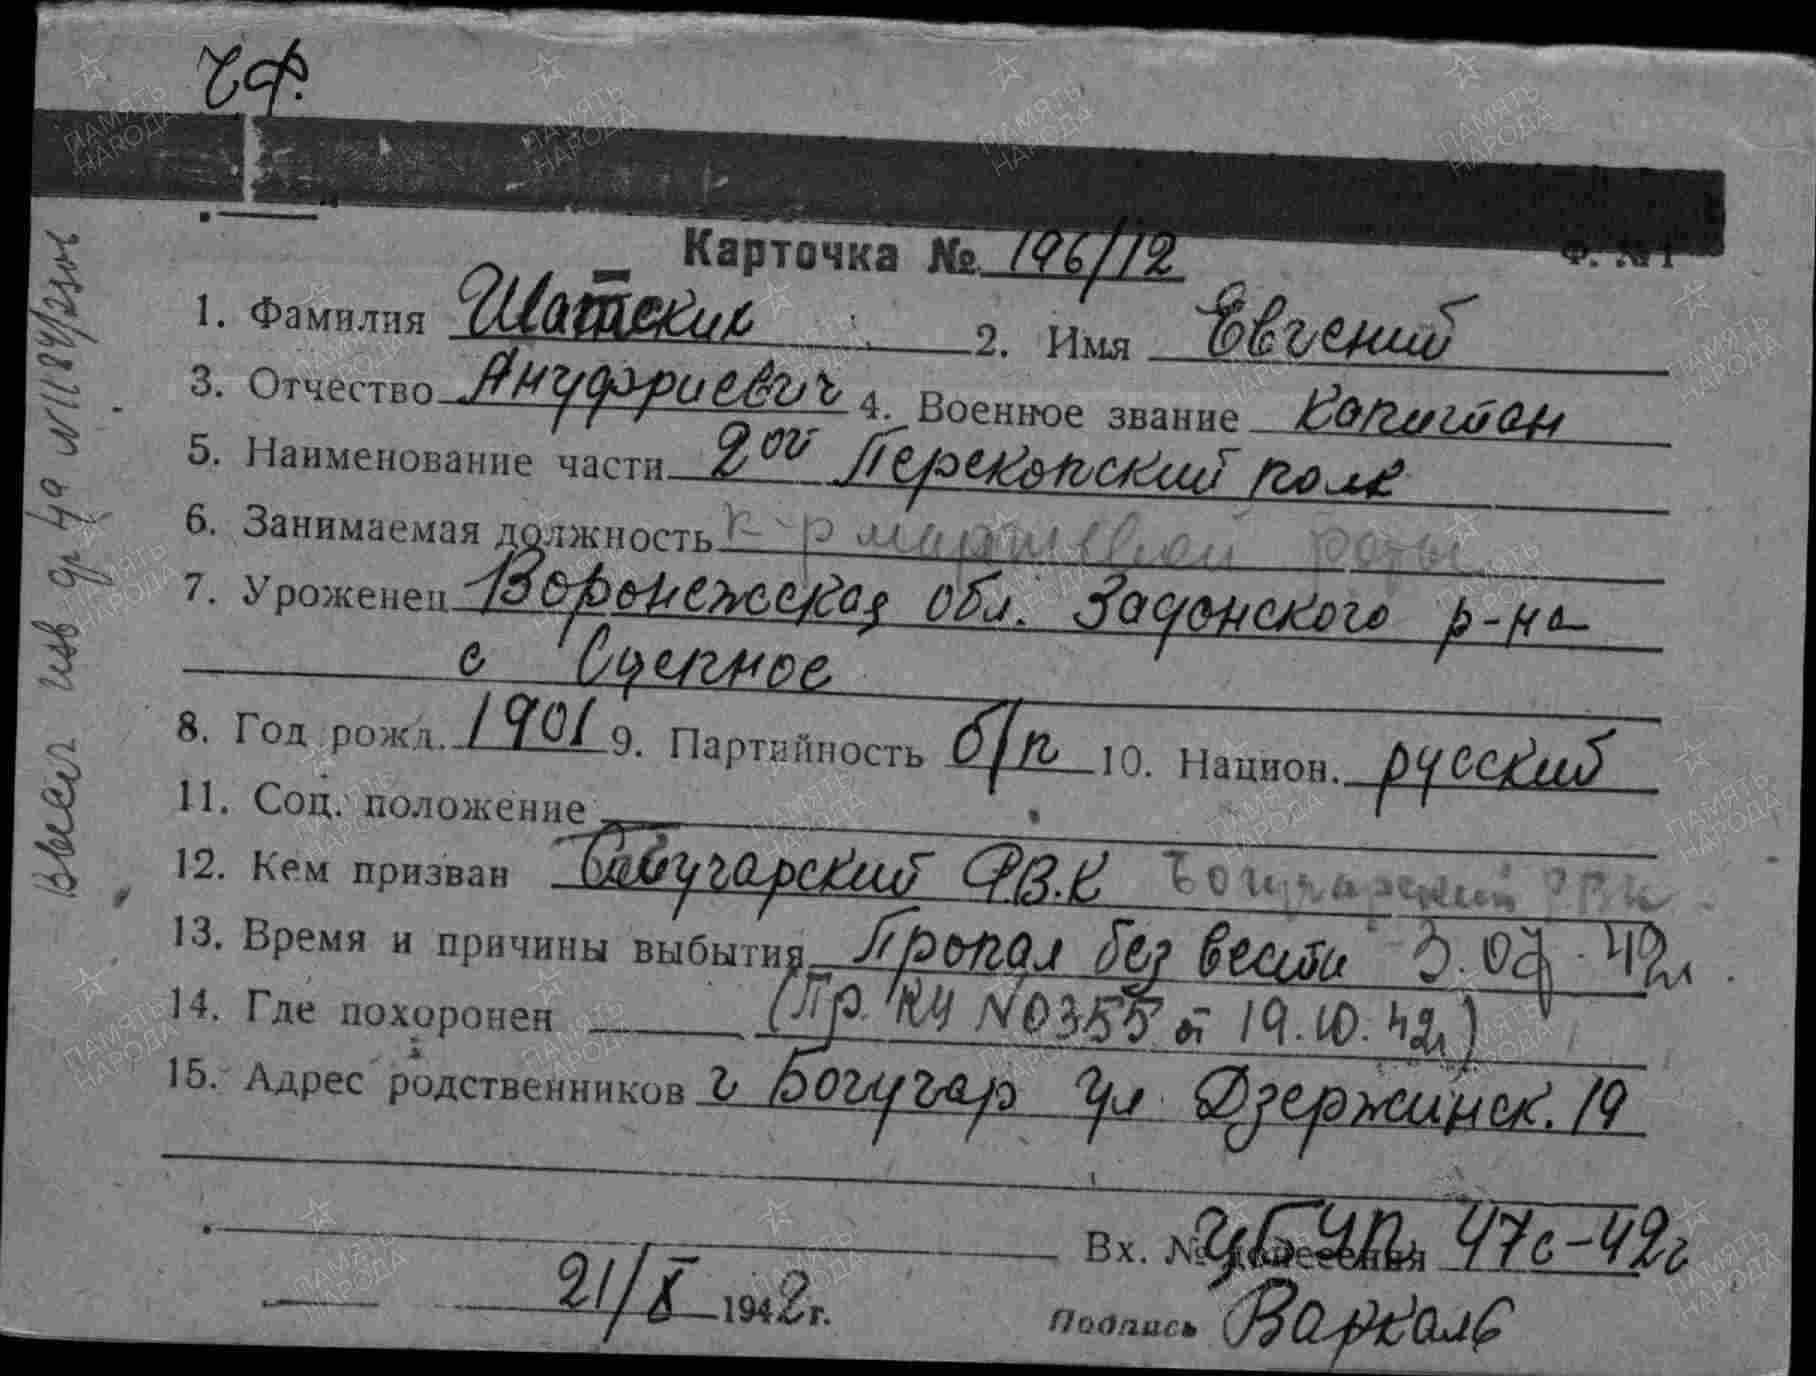 ЧФ.
Карточка № 196/12
Ф. № 1
1. Фамилия Шатских 2. Имя Евгений
3. Отчество Ануфриевич 4. Военное звание Капитан
5. Наименование части 2ой Перекопский полк
6. Занимаемая должность к-р маршевой роты
7. Уроженец Воронежская обл. Задонского р-на
с Сцепное
8. Год рожд. 1901 9. Партийность б/п 10. Национ. русский
11. Соц. положение
12. Кем призван Бабучарский Р.В.К Богучарский РВК
13. Время и причины выбытия Пропал без вести 3.07.42г.
14. Где похоронен (Пр. КЧ N0355 от 19.10.42г)
15. Адрес родственников г Богучар ул. Дзержинск. 19
Вх. № донесения УБЧП 47с-42г
21/X 1942г.
Подпись Варкаль
ПАМЯТЬ НАРОДА